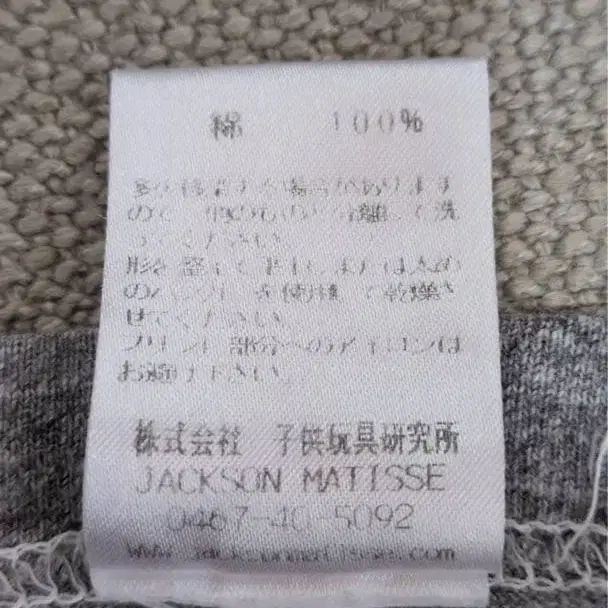 綿 100%
多少移染する場合があります
ので、他のものと分離して洗
ってください。
形を整えて平干しまたは太め
のハンガーを使用して乾燥さ
せてください。
プリント部分へのアイロンは
お避け下さい。
株式会社 子供玩具研究所
JACKSON MATISSE
0467-40-5092
www.jacksonmatisse.com